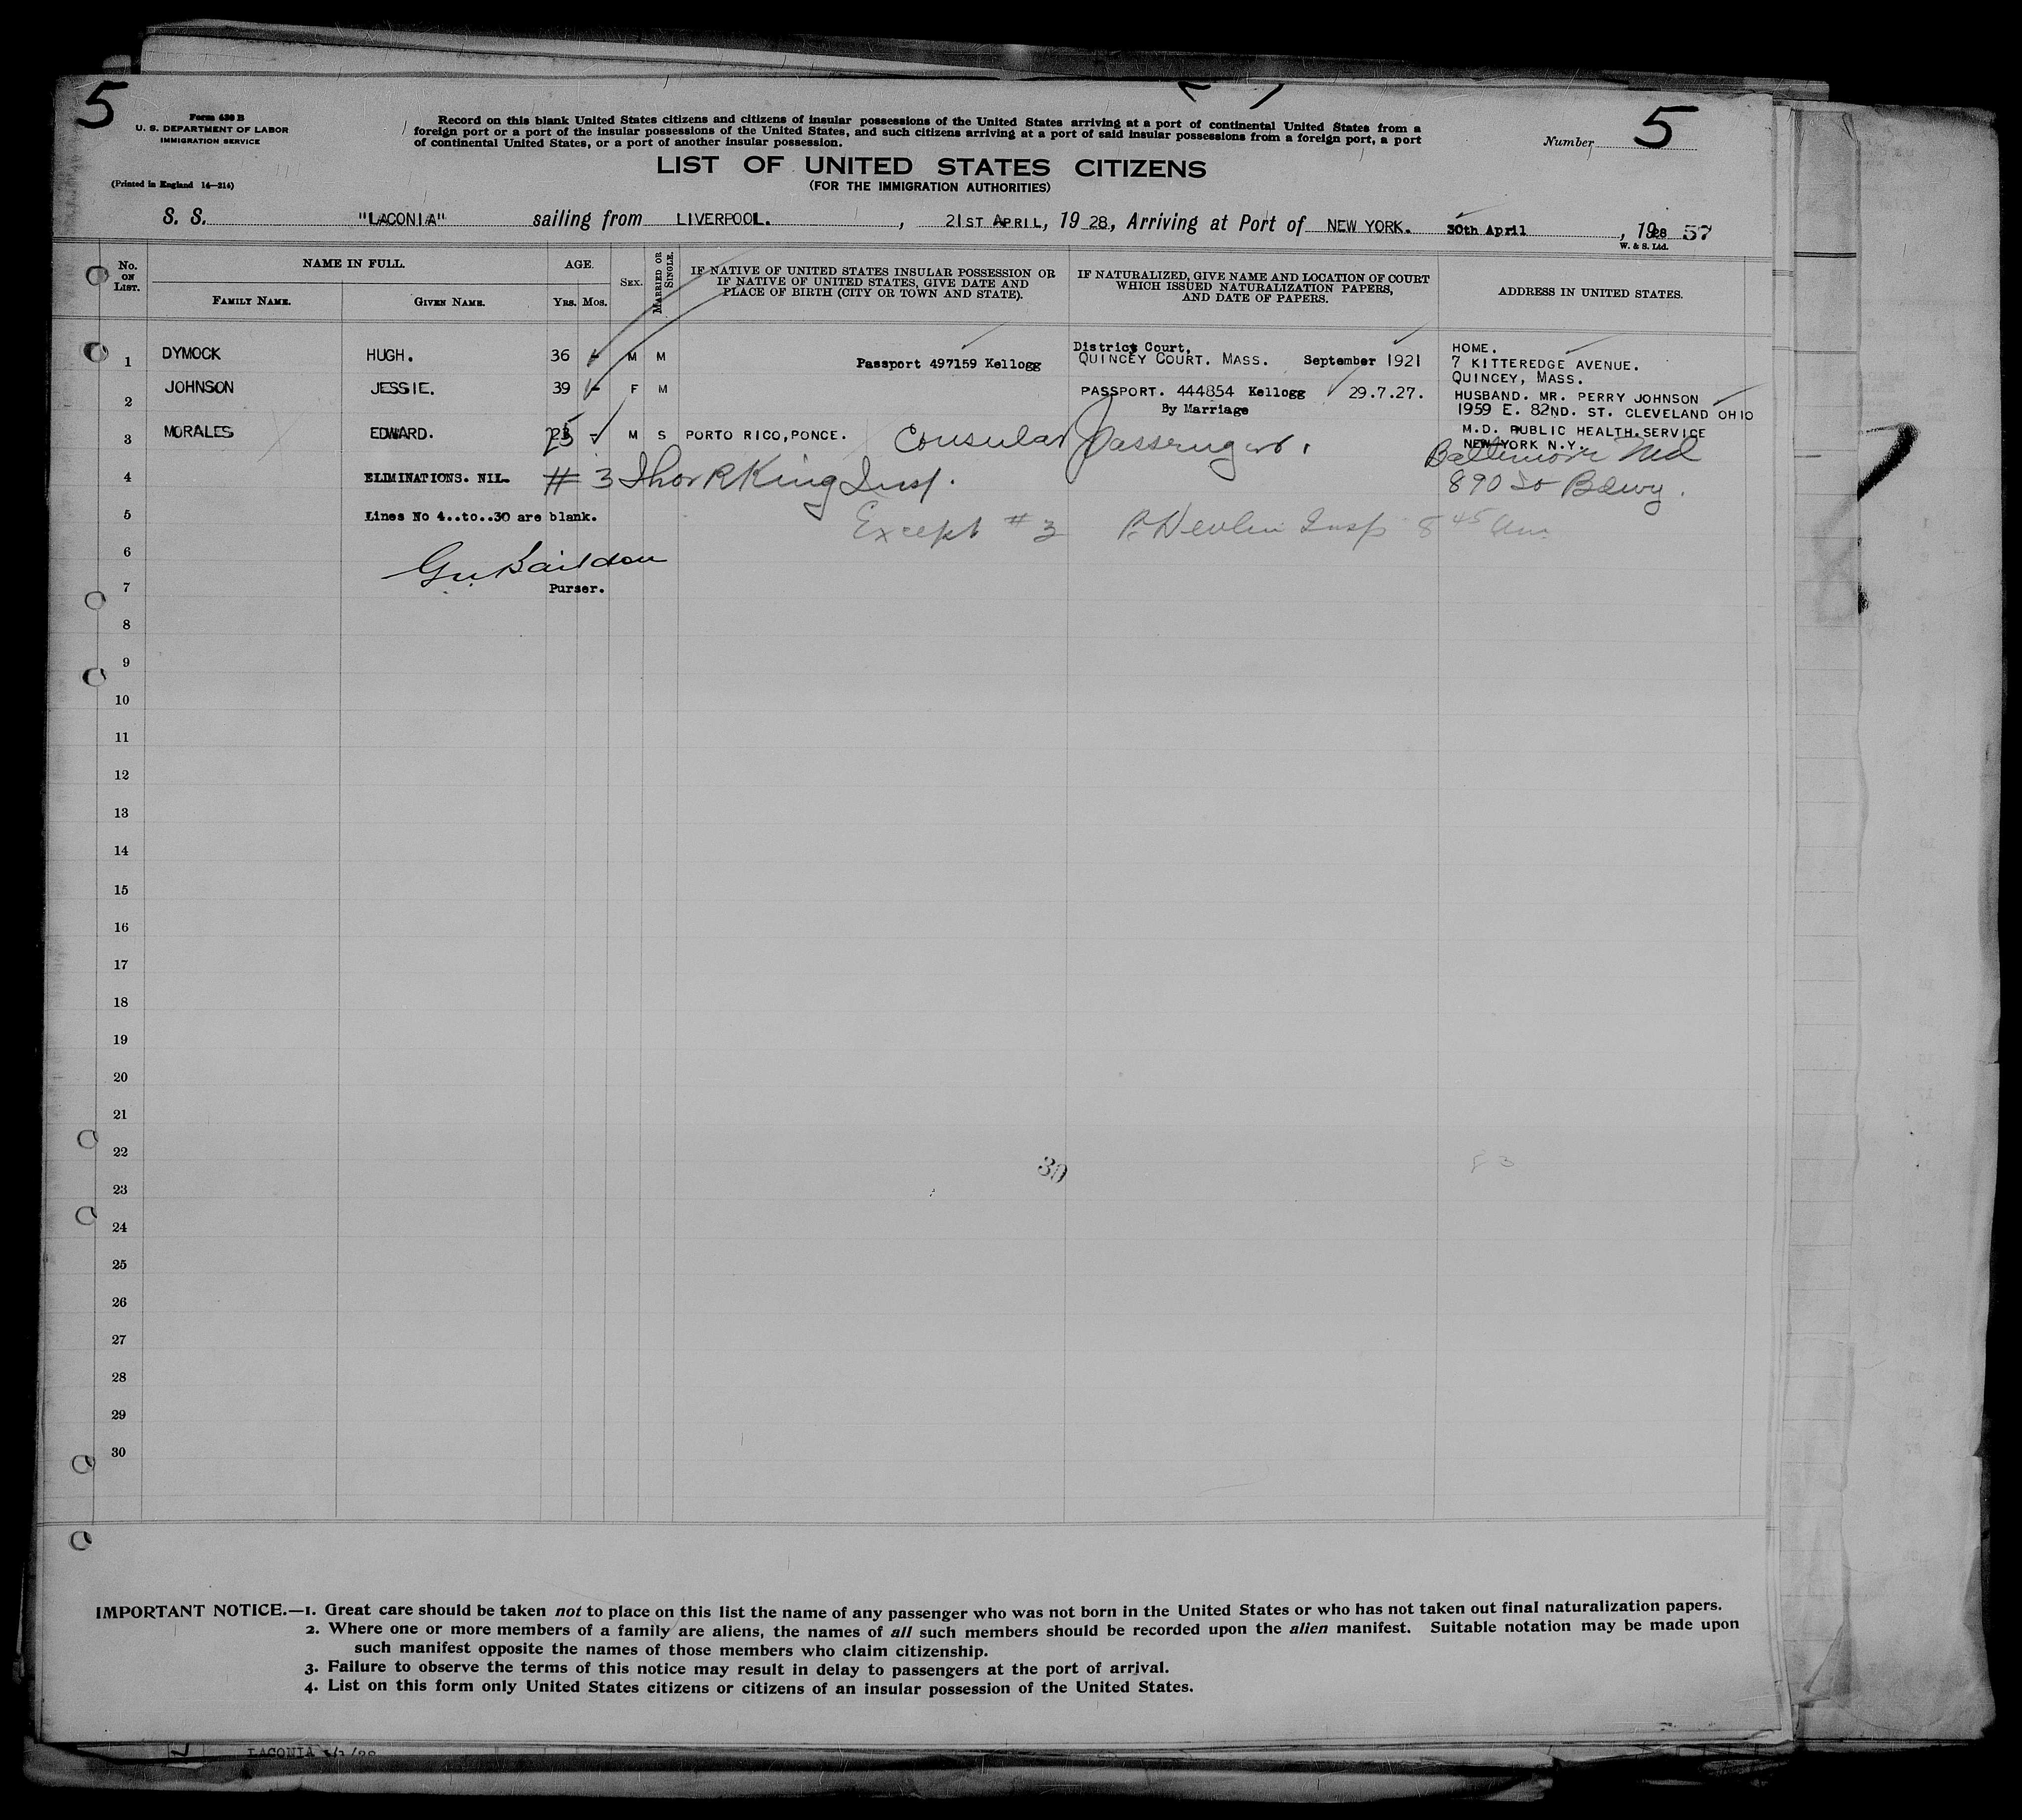 5
Form 630 B
U. S. DEPARTMENT OF LABOR
IMMIGRATION SERVICE
(Printed in England 14—214)
Record on this blank United States citizens and citizens of insular possessions of the United States arriving at a port of continental United States from a
foreign port or a port of the insular possessions of the United States, and such citizens arriving at a port of said insular possessions from a foreign port, a port
of continental United States, or a port of another insular possession.
Number 5
LIST OF UNITED STATES CITIZENS
(FOR THE IMMIGRATION AUTHORITIES)
S. S. "LACONIA" sailing from LIVERPOOL. , 21ST APRIL, 19 28, Arriving at Port of NEW YORK. 30th April , 1928 57
W. & S. Ltd.
No. ON LIST.
NAME IN FULL.
FAMILY NAME.
GIVEN NAME.
AGE.
YRS. MOS.
SEX.
MARRIED OR SINGLE.
IF NATIVE OF UNITED STATES INSULAR POSSESSION OR
IF NATIVE OF UNITED STATES, GIVE DATE AND
PLACE OF BIRTH (CITY OR TOWN AND STATE).
IF NATURALIZED, GIVE NAME AND LOCATION OF COURT
WHICH ISSUED NATURALIZATION PAPERS,
AND DATE OF PAPERS.
ADDRESS IN UNITED STATES.
1 DYMOCK HUGH. 36 - M M Passport 497159 Kellogg
District Court,
QUINCEY COURT. MASS. September 1921
HOME.
7 KITTEREDGE AVENUE.
QUINCEY, MASS.
2 JOHNSON JESSIE. 39 - F M PASSPORT. 444854 Kellogg 29.7.27.
By Marriage
HUSBAND. MR. PERRY JOHNSON
1959 E. 82ND. ST. CLEVELAND OHIO
3 MORALES EDWARD. 25 - M S PORTO RICO, PONCE. Consular Passenger.
M.D. PUBLIC HEALTH.SERVICE
NEW YORK N.Y.
Baltimore Md
4 ELIMINATIONS. NIL. # 3 Thor R King Insp. 890 So Bdwy.
5 Lines No 4..to..30 are blank. Except # 3 P. Devlin Insp 8 45 am
6
7 Purser.
8
9
10
11
12
13
14
15
16
17
18
19
20
21
22
30
23
24
25
26
27
28
29
30
IMPORTANT NOTICE.—1. Great care should be taken not to place on this list the name of any passenger who was not born in the United States or who has not taken out final naturalization papers.
2. Where one or more members of a family are aliens, the names of all such members should be recorded upon the alien manifest. Suitable notation may be made upon
such manifest opposite the names of those members who claim citizenship.
3. Failure to observe the terms of this notice may result in delay to passengers at the port of arrival.
4. List on this form only United States citizens or citizens of an insular possession of the United States.
LACONIA